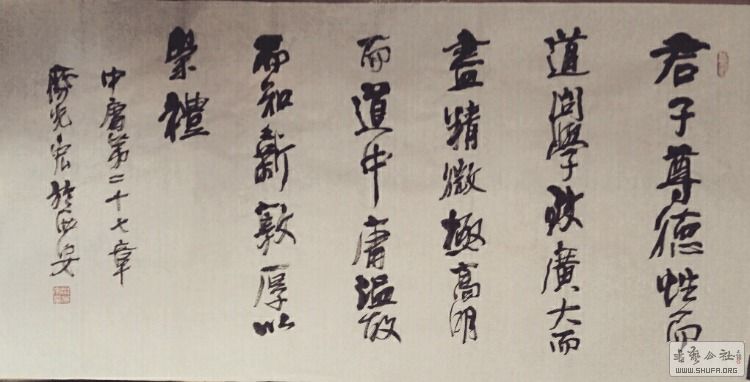 君子尊德性而
道問學致廣大而
盡精微極高明
而道中庸温故
而知新敦厚以
崇禮
中庸第二十七章
光宏於西安
書藝公社
WWW.SHUFA.ORG